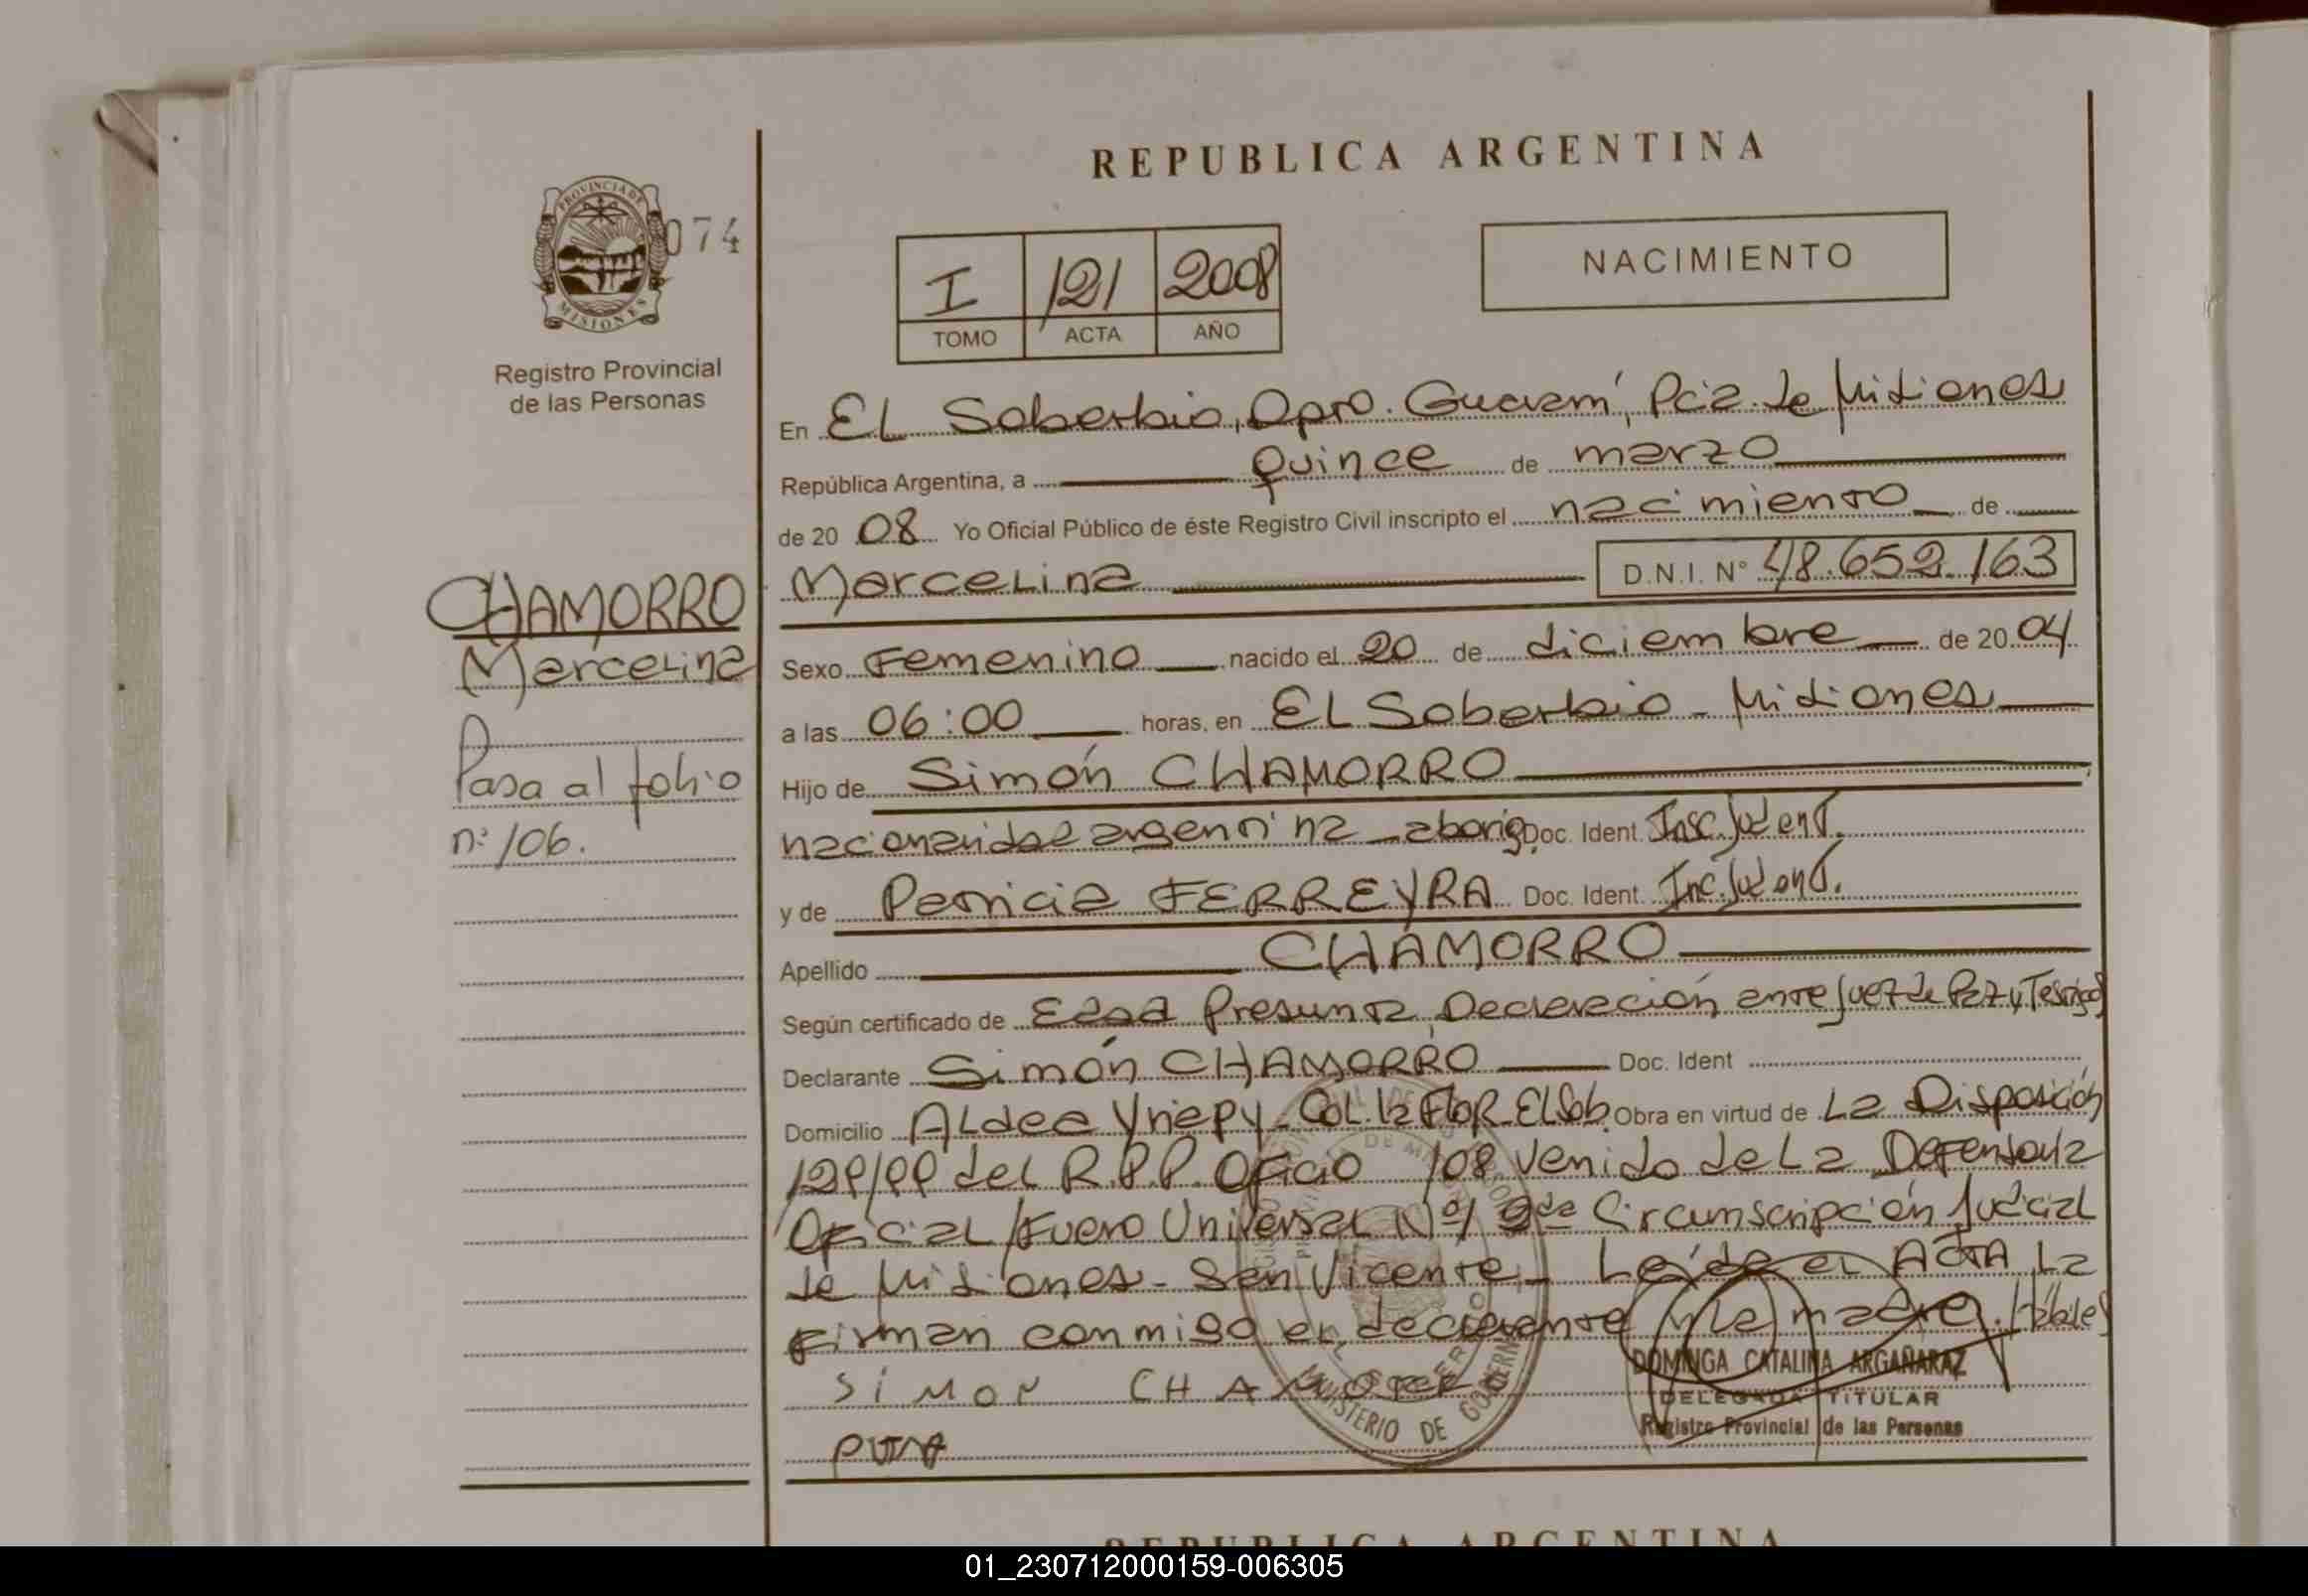 REPUBLICA ARGENTINA
PROVINCIA DE
MISIONES
074
I 121 2008
TOMO ACTA AÑO
NACIMIENTO
Registro Provincial
de las Personas
CHAMORRO
Marcelina
Pasa al folio
n: 106.
En El Soberbio, Dpto. Guaraní, Pcia. de Misiones
República Argentina, a quince de marzo
de 2008 Yo Oficial Público de éste Registro Civil inscripto el nacimiento de
Marcelina D.N.I. N° 48.652.163
Sexo Femenino nacido el 20 de diciembre de 2004
a las 06:00 horas, en El Soberbio - Misiones
Hijo de Simón CHAMORRO
nacionalidad argentina - aborig. Doc. Ident. Insc. Ident.
y de Patricia FERREYRA Doc. Ident. Inc. Ident.
Apellido CHAMORRO
Según certificado de Edad Presunta, Declaración ante Juez de Paz y Testigos
Declarante Simón CHAMORRO Doc. Ident
Domicilio Aldea Yriapy - Col. la Flor - El Sob. Obra en virtud de La Disposición
129/99 del R.P.P. Oficio /08 venido de La Defensoría
Oficial/Fuero Universal Nº 1 2da Circunscripción Judicial
de Misiones - San Vicente - Leída el ACTA La
firman conmigo el declarante y la madre. hábiles
SiMON CHAMORRO
DOMINGA CATALINA ARGAÑARAZ
DELEGADA TITULAR
Registro Provincial de las Personas
MINISTERIO DE GOBIERNO
REPUBLICA ARGENTINA
01_230712000159-006305